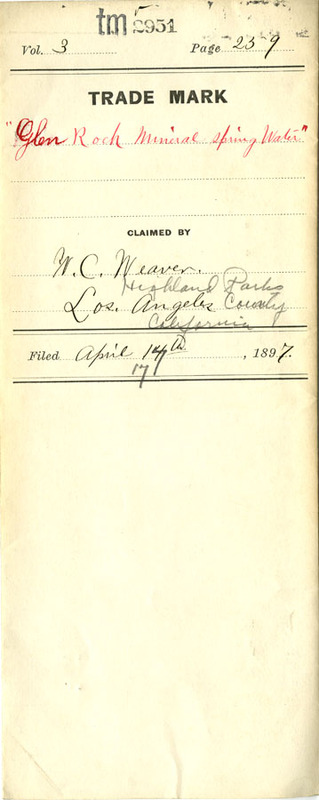 tm 2951
Vol. 3 Page 239
TRADE MARK
"Glen Rock Mineral Spring Water"
CLAIMED BY
W. C. Weaver.
Highland Parks
Los. Angeles County
California
Filed April 14th, 1897.
17